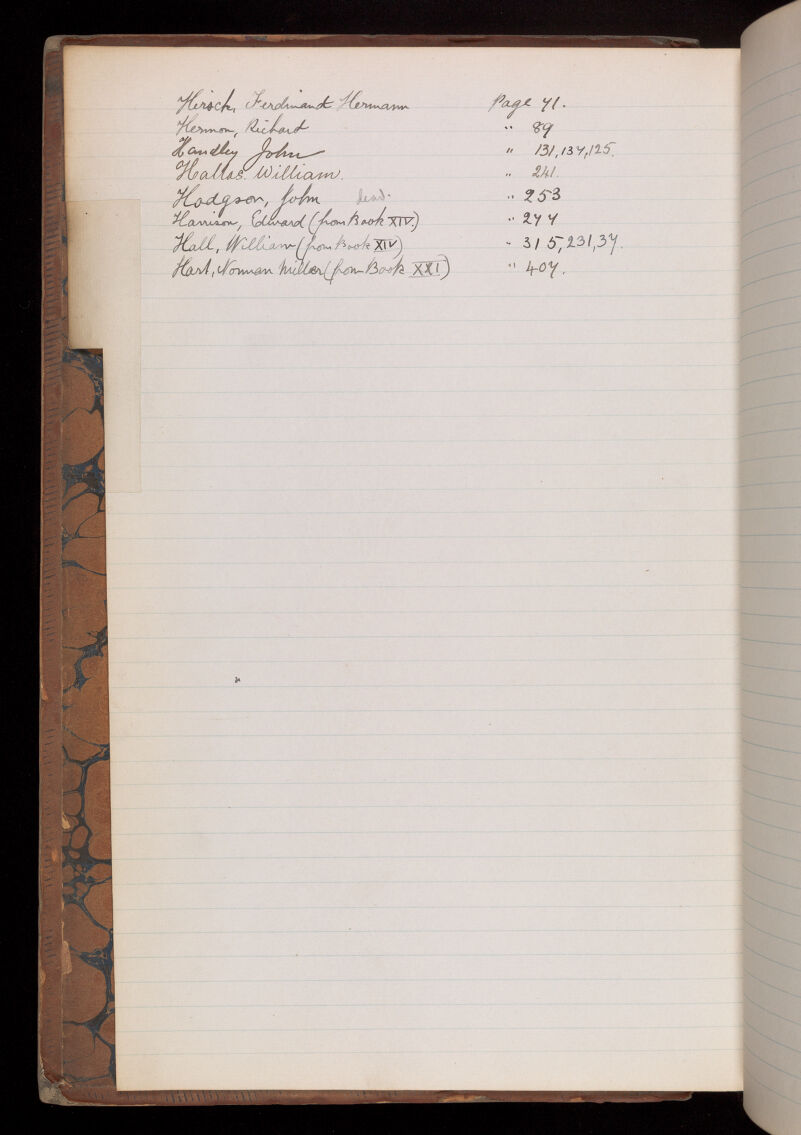 Hirsch, Ferdinand Hermann Page 71.
Hermon, Richard " 89
Handley John " 131, 137, 125.
Hallas William. " 241.
Hodgson, John dead. " 253
Harrison, Edward (from Book XIV.) " 277
Hall, William (from Book XIV) " 315, 231, 37.
Hart, Norman Miller (from Book XXI) " 407.